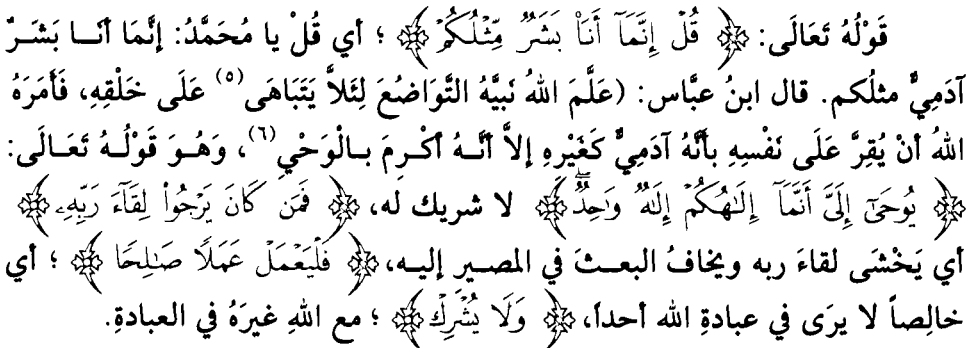 قَوْلُهُ تَعَالَى: ﴿ قُلْ إِنَّمَآ أَنَا۠ بَشَرٌ مِّثْلُكُمْ ﴾ ؛ أي قُلْ يا مُحَمَّدُ: إنَّمَا أنَــا بَشَــرٌ
آدَمِيٌّ مثلُكم. قال ابنُ عبَّاس: (عَلَّمَ اللهُ نَبيَّهُ التَّوَاضُعَ لِئَلاَّ يَتَبَاهَى(٥) عَلَى خَلْقِهِ، فَأَمَرَهُ
اللهُ أنْ يُقِرَّ عَلَى نَفْسِهِ بأَنَّهُ آدَمِيٌّ كَغَيْرِهِ إلاَّ أنَّــهُ أكْــرِمَ بــالْوَحْيِ(٦)، وَهُــوَ قَوْلُــهُ تَعَــالَى:
﴿ يُوحَىٰٓ إِلَىَّ أَنَّمَآ إِلَٰهُكُمْ إِلَٰهٌ وَٰحِدٌۖ ﴾ لا شريك له، ﴿ فَمَن كَانَ يَرْجُوا۟ لِقَآءَ رَبِّهِۦ ﴾
أي يَخْشَى لقاءَ ربه ويخافُ البعــثَ في المصــيرِ إليــه، ﴿ فَلْيَعْمَلْ عَمَلًا صَٰلِحًا ﴾ ؛ أي
خالِصاً لا يرَى في عبادةِ الله أحداً، ﴿ وَلَا يُشْرِكْ ﴾ ؛ مع اللهِ غيرَهُ في العبادةِ.